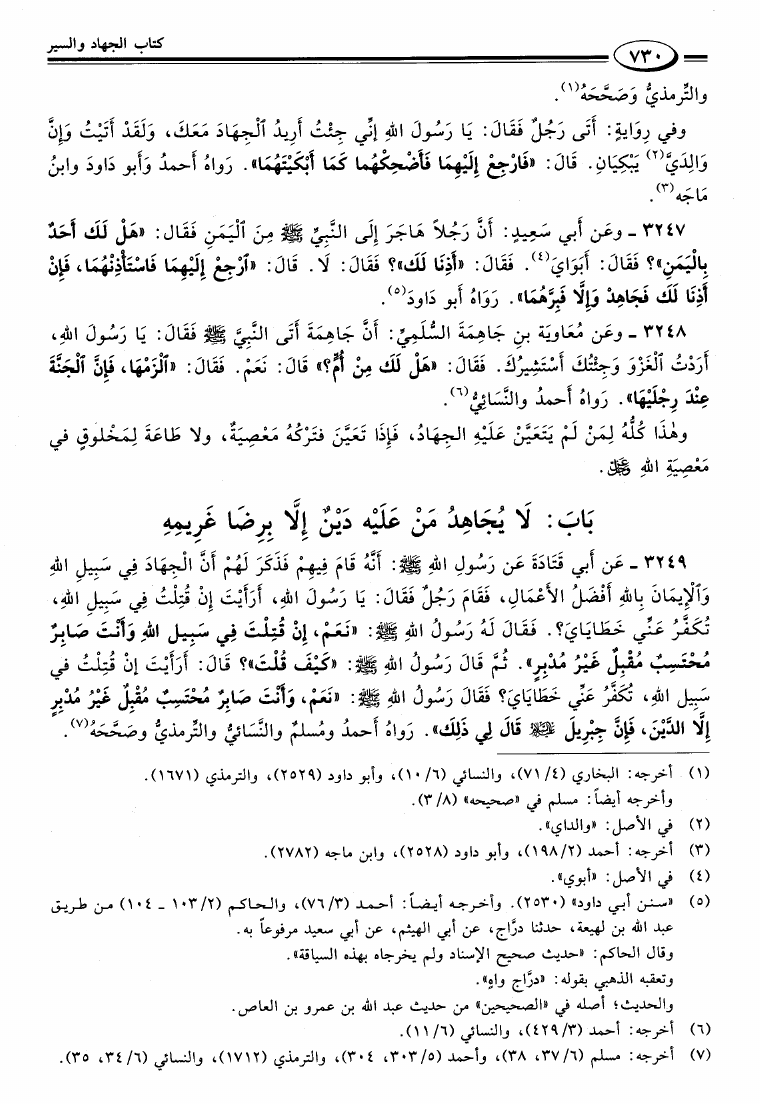 كتاب الجهاد والسير
٧٣٠
والتِّرمذيُّ وَصَحَّحَهُ(١).
وفي رِوَايةٍ: أَتَى رَجُلٌ فَقَالَ: يَا رَسُولَ اللهِ إِنِّي جِئْتُ أُرِيدُ ٱلْجِهَادَ مَعَكَ، وَلَقَدْ أَتَيْتُ وَإِنَّ
وَالِدَيَّ(٢) يَبْكِيَانِ. قَالَ: «فَارْجِعْ إِلَيْهِمَا فَأَضْحِكْهُما كَمَا أَبْكَيْتَهُمَا». رَواهُ أحمدُ وَأبو داودَ وابنُ
مَاجَه(٣).
٣٢٤٧ ـ وعَن أبي سَعِيدٍ: أَنَّ رَجُلاً هَاجَرَ إِلَى النَّبِيِّ ﷺ مِنَ ٱلْيَمَنِ فَقَال: «هَلْ لَكَ أَحَدٌ
بِالْيَمَنِ»؟ فَقَالَ: أَبَوَايَ(٤). فَقَالَ: «أَذِنَا لَكَ»؟ فَقَالَ: لَا. قَالَ: «ٱرْجِعْ إِلَيْهِمَا فَاسْتَأْذِنْهُمَا، فَإِنْ
أَذِنَا لَكَ فَجَاهِدْ وَإِلَّا فَبِرَّهُمَا». رَوَاهُ أبو داودَ(٥).
٣٢٤٨ ـ وعَن مُعَاوِيَة بنِ جَاهِمَةَ السُّلَمِيِّ: أَنَّ جَاهِمَةَ أَتَى النَّبِيَّ ﷺ فَقَالَ: يَا رَسُولَ اللهِ،
أَرَدْتُ ٱلْغَزْوَ وَجِئْتُكَ أَسْتَشِيرُكَ. فَقَالَ: «هَلْ لَكَ مِنْ أُمٍّ؟» قَالَ: نَعَمْ. فَقَالَ: «ٱلْزَمْهَا، فَإِنَّ ٱلْجَنَّةَ
عِنْدَ رِجْلَيْهَا». رَواهُ أَحمدُ والنَّسائِيُّ(٦).
وهٰذَا كُلُّهُ لِمَنْ لَمْ يَتَعَيَّنْ عَلَيْهِ الجِهَادُ، فَإِذَا تَعَيَّنَ فَتَرْكُهُ مَعْصِيَةٌ، ولا طَاعَةَ لِمَخْلُوقٍ في
مَعْصِيَةِ اللهِ ﷿.
بَابَ: لَا يُجَاهِدُ مَنْ عَلَيْه دَيْنٌ إِلَّا بِرِضَا غَرِيمِهِ
٣٢٤٩ ـ عَن أبي قَتَادَةَ عَن رَسُولِ اللهِ ﷺ: أَنَّهُ قَامَ فِيهِمْ فَذَكَرَ لَهُمْ أَنَّ الْجِهَادَ فِي سَبِيلِ اللهِ
وَٱلْإِيمَانَ بِاللهِ أَفْضَلُ الأَعْمَالِ، فَقَامَ رَجُلٌ فَقَالَ: يَا رَسُولَ اللهِ، أَرَأَيْتَ إِنْ قُتِلْتُ فِي سَبِيلِ اللهِ،
تُكَفَّرُ عَنِّي خَطَايَايَ؟. فَقَالَ لَهُ رَسُولُ اللهِ ﷺ: «نَعَمْ، إِنْ قُتِلْتَ فِي سَبِيلِ اللهِ وَأَنْتَ صَابِرٌ
مُحْتَسِبٌ مُقْبِلٌ غَيْرُ مُدْبِرٍ». ثُمَّ قَالَ رَسُولُ اللهِ ﷺ: «كَيْفَ قُلْتَ»؟ قَالَ: أَرَأَيْتَ إِنْ قُتِلْتُ فِي
سَبِيلِ اللهِ، تُكَفَّرُ عَنِّي خَطَايَايَ؟ فَقَالَ رَسُولُ اللهِ ﷺ: «نَعَمْ، وَأَنْتَ صَابِرٌ مُحْتَسِبٌ مُقْبِلٌ غَيْرُ مُدْبِرٍ
إِلَّا الدَّيْنَ، فَإِنَّ جِبْرِيلَ ﷺ قَالَ لِي ذَلِكَ». رَواهُ أَحمدُ ومُسلمٌ والنَّسَائيُّ والتِّرمذيُّ وصَحَّحَهُ(٧).
(١) أخرجه: البخاري (٧١/٤)، والنسائي (١٠/٦)، وأبو داود (٢٥٢٩)، والترمذي (١٦٧١).
وأخرجه أيضاً: مسلم في «صحيحه» (٣/٨).
(٢) في الأصل: «والداي».
(٣) أخرجه: أحمد (١٩٨/٢)، وأبو داود (٢٥٢٨)، وابن ماجه (٢٧٨٢).
(٤) في الأصل: «أبوي».
(٥) «سنن أبي داود» (٢٥٣٠). وأخرجه أيضاً: أحمد (٧٦/٣)، والحاكم (١٠٣/٢ ـ ١٠٤) من طريق
عبد الله بن لهيعة، حدثنا درَّاج، عن أبي الهيثم، عن أبي سعيد مرفوعاً به.
وقال الحاكم: «حديث صحيح الإسناد ولم يخرجاه بهذه السياقة».
وتعقبه الذهبي بقوله: «درَّاج واهٍ».
والحديث؛ أصله في «الصحيحين» من حديث عبد الله بن عمرو بن العاص.
(٦) أخرجه: أحمد (٤٢٩/٣)، والنسائي (١١/٦).
(٧) أخرجه: مسلم (٣٧/٦، ٣٨)، وأحمد (٣٠٣/٥، ٣٠٤)، والترمذي (١٧١٢)، والنسائي (٣٤/٦، ٣٥).